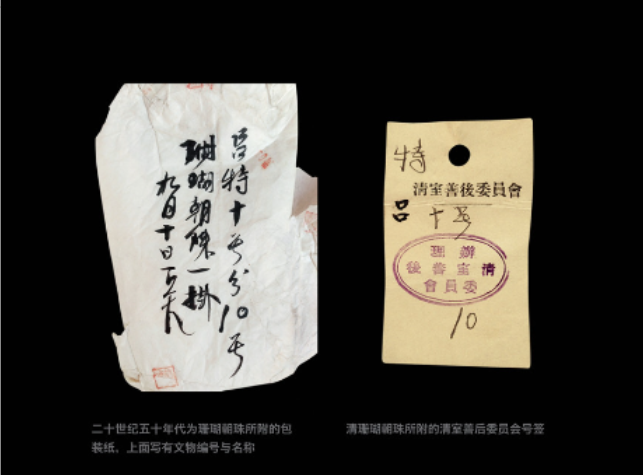 吕特十号分10号
珊瑚朝珠一掛
九月十日
特
清室善後委員會
吕 十号
辦理
清室善後
委員會
10
二十世纪五十年代为珊瑚朝珠所附的包
装纸，上面写有文物编号与名称
清珊瑚朝珠所附的清室善后委员会号签